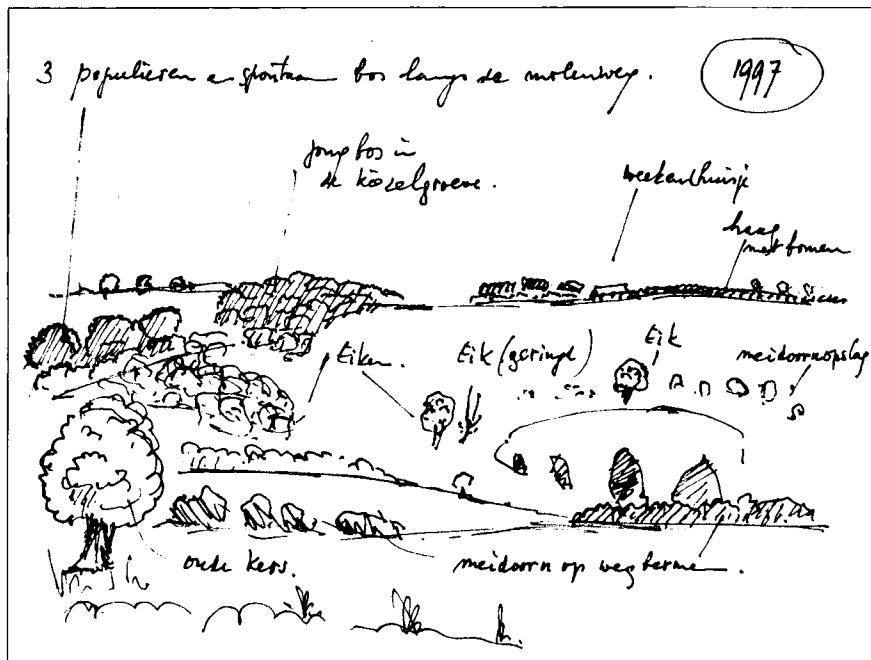 3 populieren en spontaan bos langs de molenweg.
1997
jong bos in
de kiezelgroeve.
weekendhuisje
haag
met bomen
Eiken
Eik (geringd)
Eik
meidoornopslag
oude kers.
meidoorn op wegbermen.